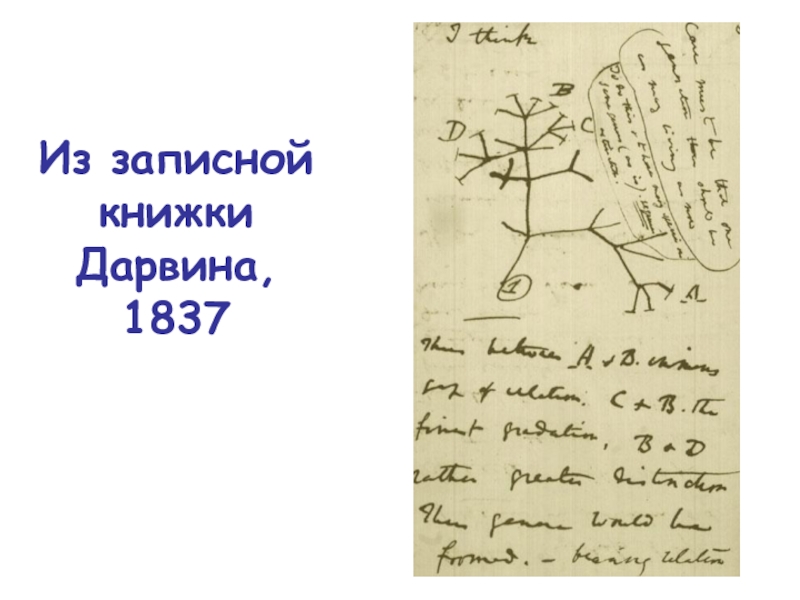 Из записной
книжки
Дарвина,
1837
I think
B
D
C
A
1
Case must be that one
generation then should be
as many living as now
To do this & to have many species in
same genus (as is). requires
extinction.
Thus between A & B. immense
gap of relation. C & B. the
finest gradation, B & D
rather greater distinction
Thus genera would be
formed. — bearing relation